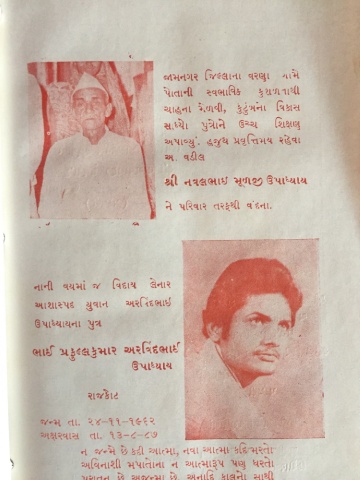 જામનગર જિલ્લાના વરણા ગામે
પોતાની સ્વભાવિક કુશળતાથી
ચાહના મેળવી, કુટુંબના વિકાસ
સાધ્યો પુત્રોને ઉચ્ચ શિક્ષણ
અપાવ્યું. હજુય પ્રવૃત્તિમય રહેવા
અ. વડીલ
શ્રી નવલભાઇ મૂળજી ઉપાધ્યાય
ને પરિવાર તરફથી વંદના.
નાની વયમાં જ વિદાય લેનાર
આશાસ્પદ યુવાન અરવિંદભાઈ
ઉપાધ્યાયના પુત્ર
ભાઈ પ્રફુલ્લકુમાર અરવિંદભાઈ
ઉપાધ્યાય
રાજકોટ
જન્મ તા. ૨૪-૧૧-૧૯૬૨
અક્ષરવાસ તા. ૧૩-૮-૮૭
ન જન્મે છે કદી આત્મા, નવા આત્મા કદિ મરતો
અવિનાશી મપાતોના ન આત્મારૂપ પણ ધરતો
પુરાતન છે અજન્મા છે. અનાદિ કાલનો સાથી